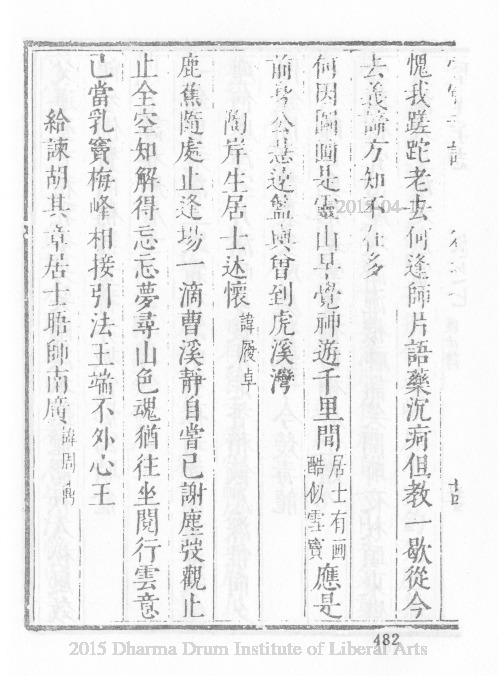 愧我蹉跎老去何逢師片語藥沉疴但教一歇從今
去義諦方知不在多
何因圖畫是靈山早覺神遊千里間居士有画酷似雪竇應是
前身公慧遠籃輿曾到虎溪灣
陶岸生居士述懷諱履卓
鹿蕉隨處止逢場一滴曹溪靜自嘗已謝塵弢觀止
止全空知解得忘忘夢尋山色魂猶往坐閱行雲意
已當乳竇梅峰相接引法王端不外心王
給諫胡其章居士晤師南廣諱周
482
2015 Dharma Drum Institute of Liberal Arts